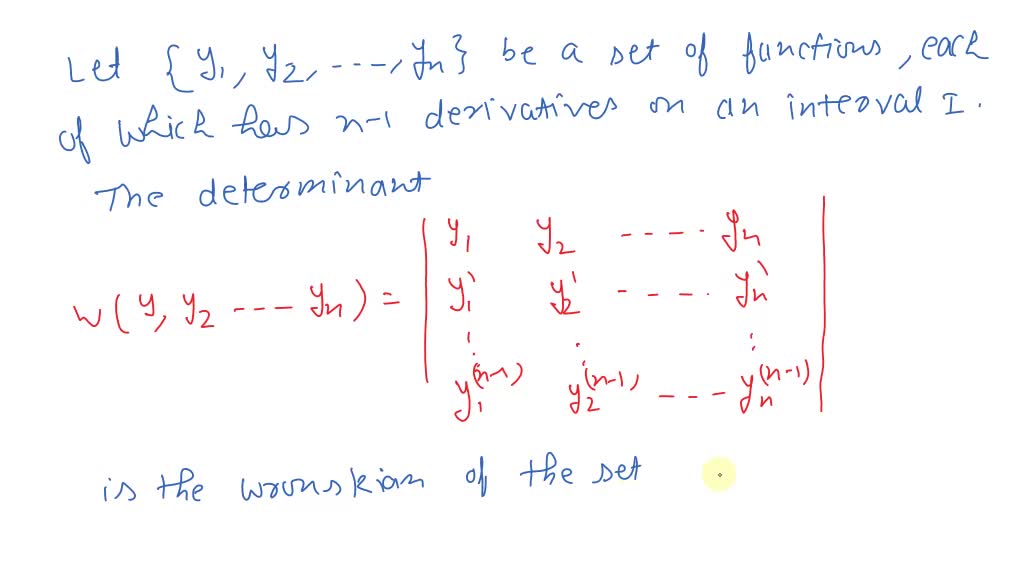 Let {y₁, y₂, ---, yₙ} be a set of functions, each
of which has n-1 derivatives on an interval I.
The determinant
y₁ y₂ ---- yₙ
W(y, y₂ --- yₙ) = | y₁' y₂' ---- yₙ' |
⋮ ⋮ ⋮
y₁⁽ⁿ⁻¹⁾ y₂⁽ⁿ⁻¹⁾ --- yₙ⁽ⁿ⁻¹⁾
is the wronskian of the set